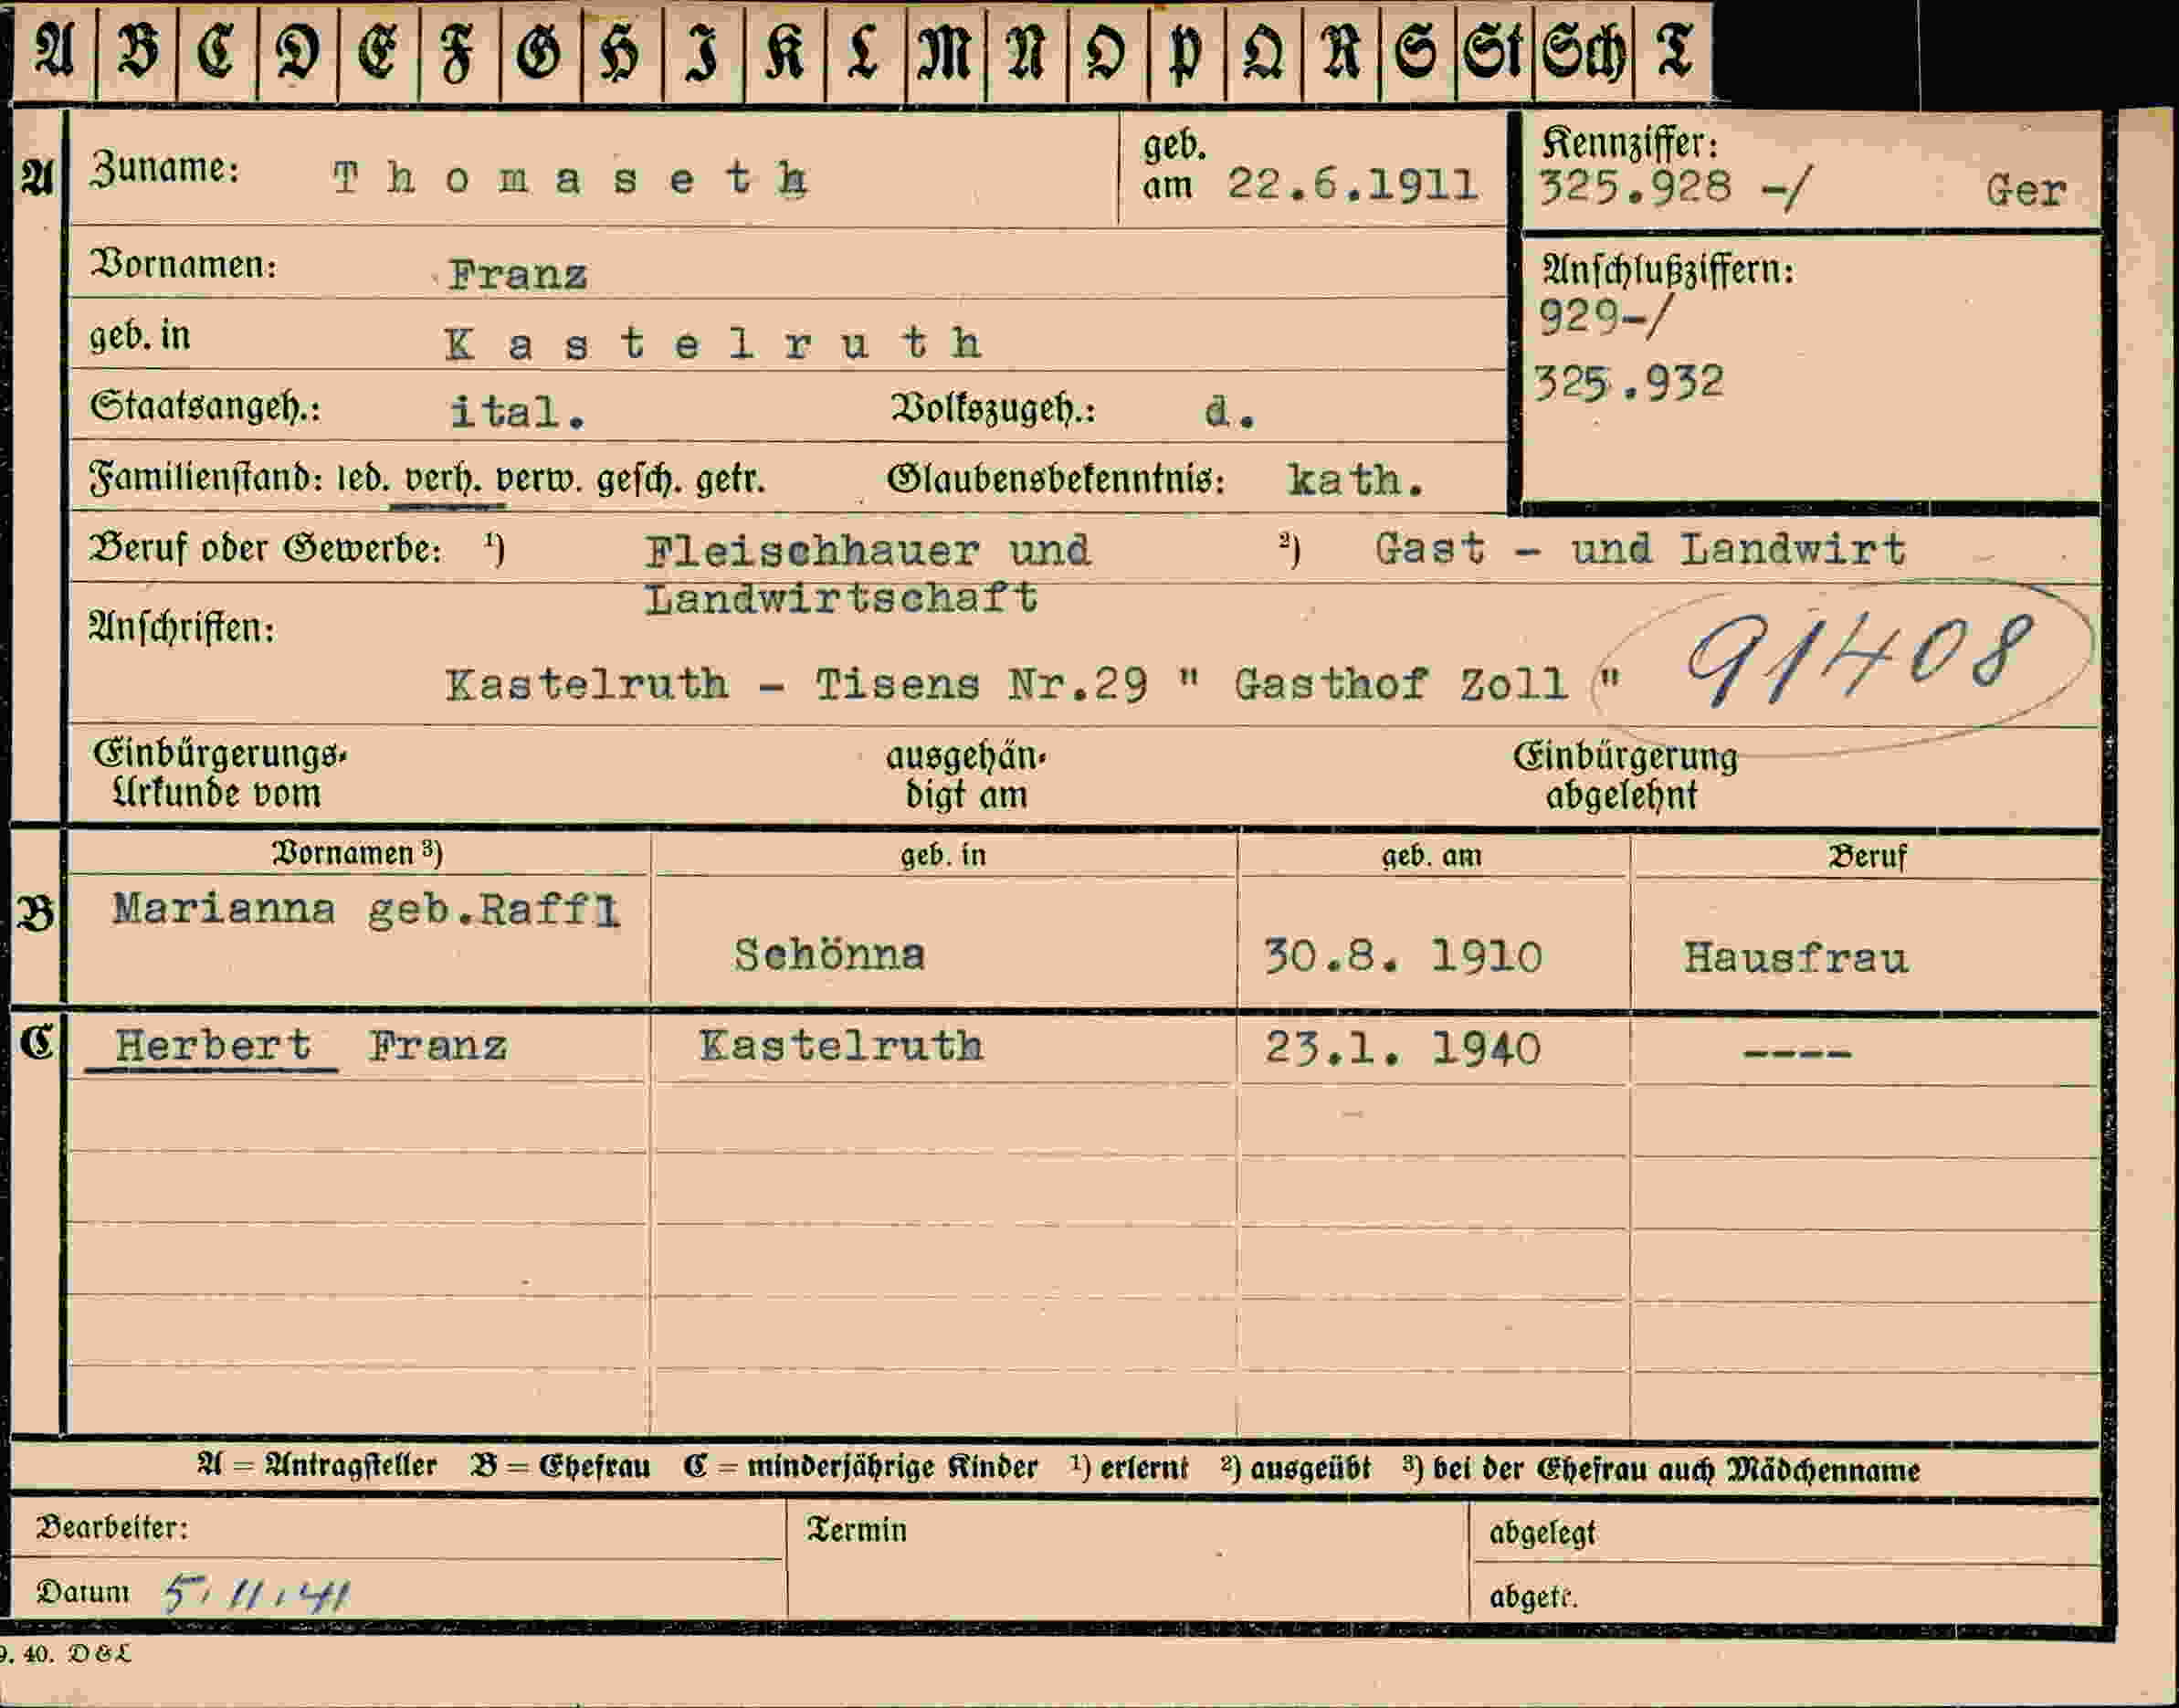 A B C D E F G H I K L M N O P Q R S St Sch T
A Zuname: Thomaseth geb. am 22.6.1911 Kennziffer: 325.928 -/ Ger
Vornamen: Franz Anschlußziffern:
929-/
geb. in Kastelruth
325.932
Staatsangeh.: ital. Volkszugeh.: d.
Familienstand: led. verh. verw. gesch. getr. Glaubensbekenntnis: kath.
Beruf oder Gewerbe: ¹) Fleischhauer und ²) Gast - und Landwirt
Landwirtschaft
Anschriften:
Kastelruth - Tisens Nr.29 " Gasthof Zoll " 91408
Einbürgerungs- ausgehän- Einbürgerung
Urkunde vom digt am abgelehnt
Vornamen ³) geb. in geb. am Beruf
B Marianna geb.Raffl
Schönna 30.8. 1910 Hausfrau
C Herbert Franz Kastelruth 23.1. 1940 ----
A = Antragsteller B = Ehefrau C = minderjährige Kinder ¹) erlernt ²) ausgeübt ³) bei der Ehefrau auch Mädchenname
Bearbeiter: Termin abgelegt
Datum 5.11.41 abgetr.
9. 40. D&L